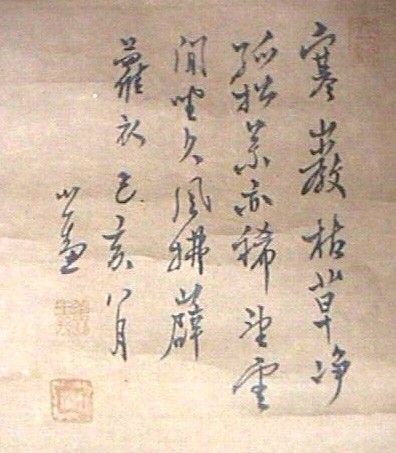 寒巖枯草净
孤松葉亦稀望雲
閒坐久風拂薜
蘿衣己亥八月
心畬